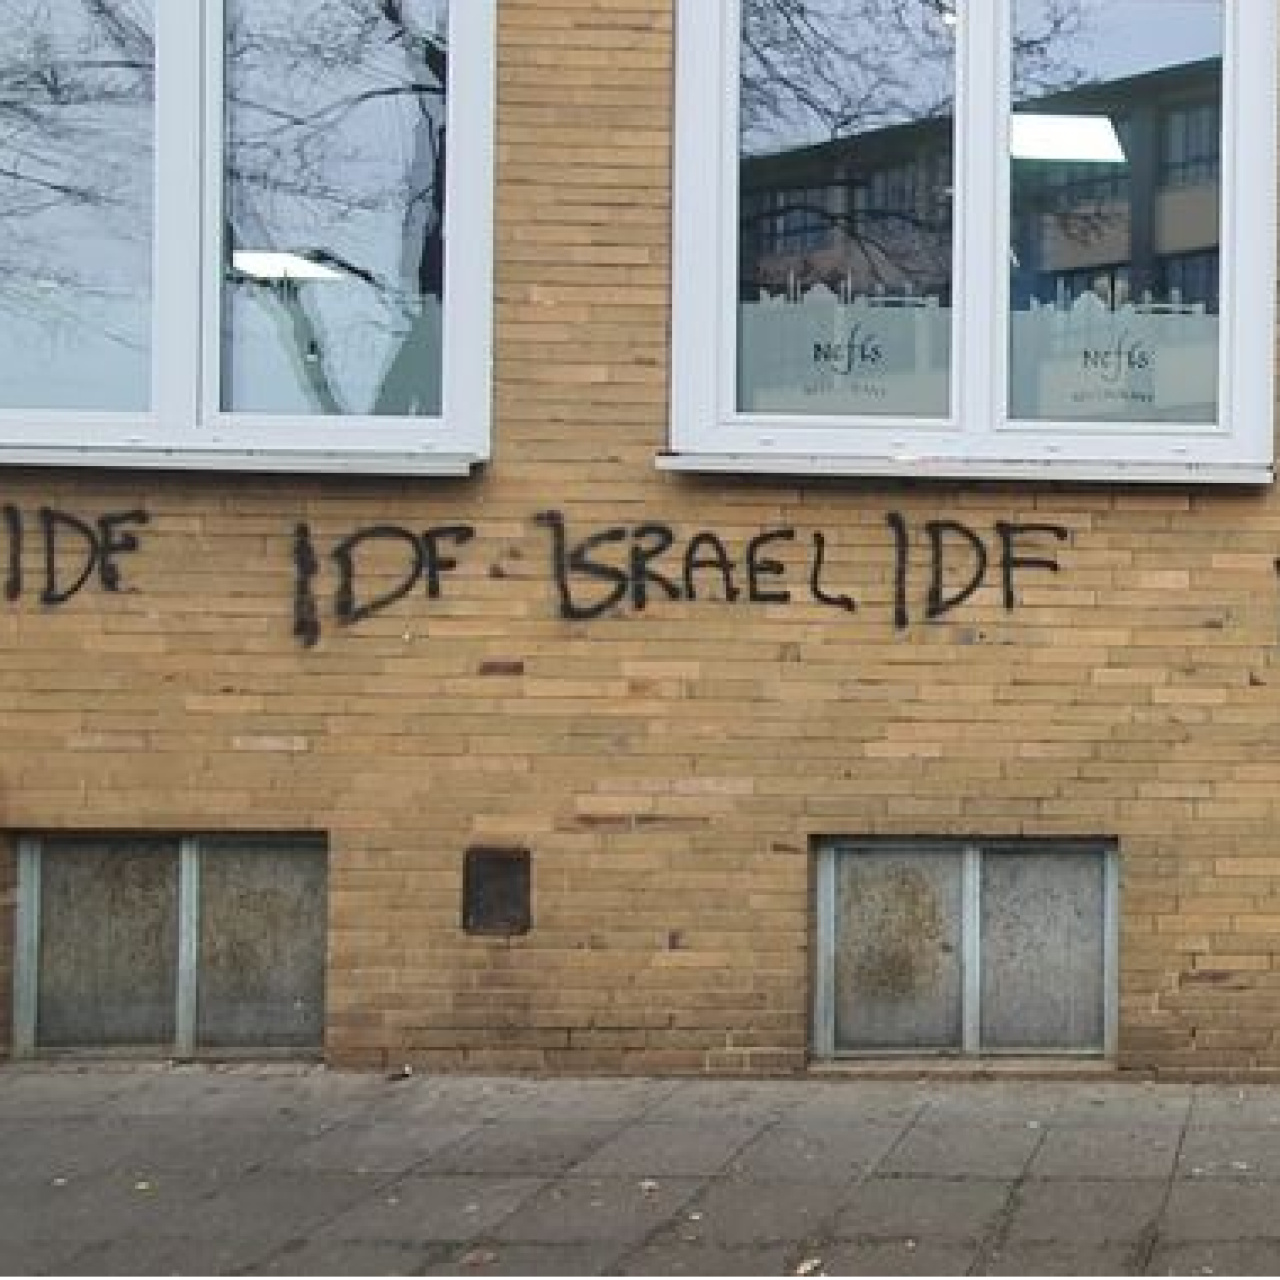 Nefis
Nefis
IDF IDF ISRAEL IDF